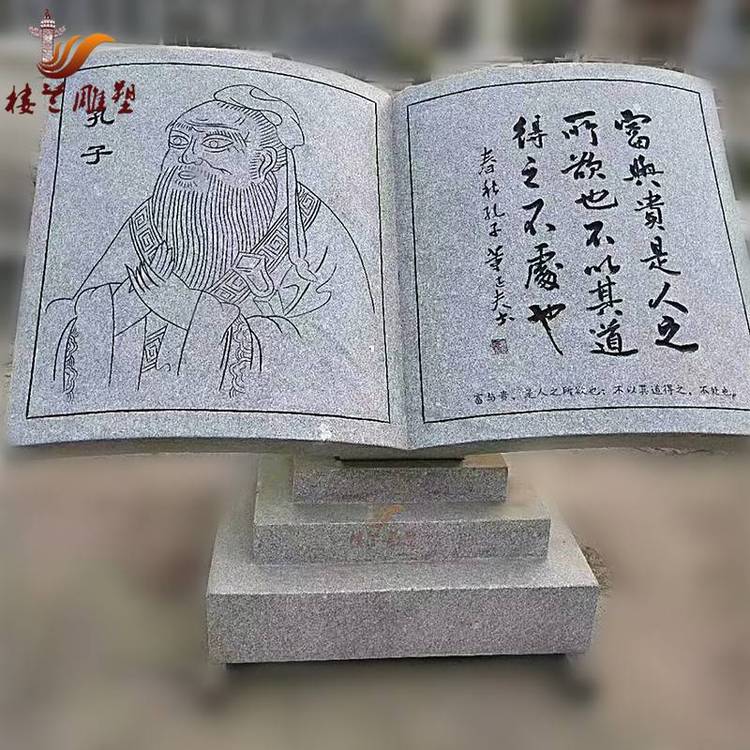 楼兰雕塑
孔子
富與貴是人之
所欲也不以其道
得之不處也
春秋孔子 董正夫书
富与贵，是人之所欲也；不以其道得之，不处也。
楼兰雕塑